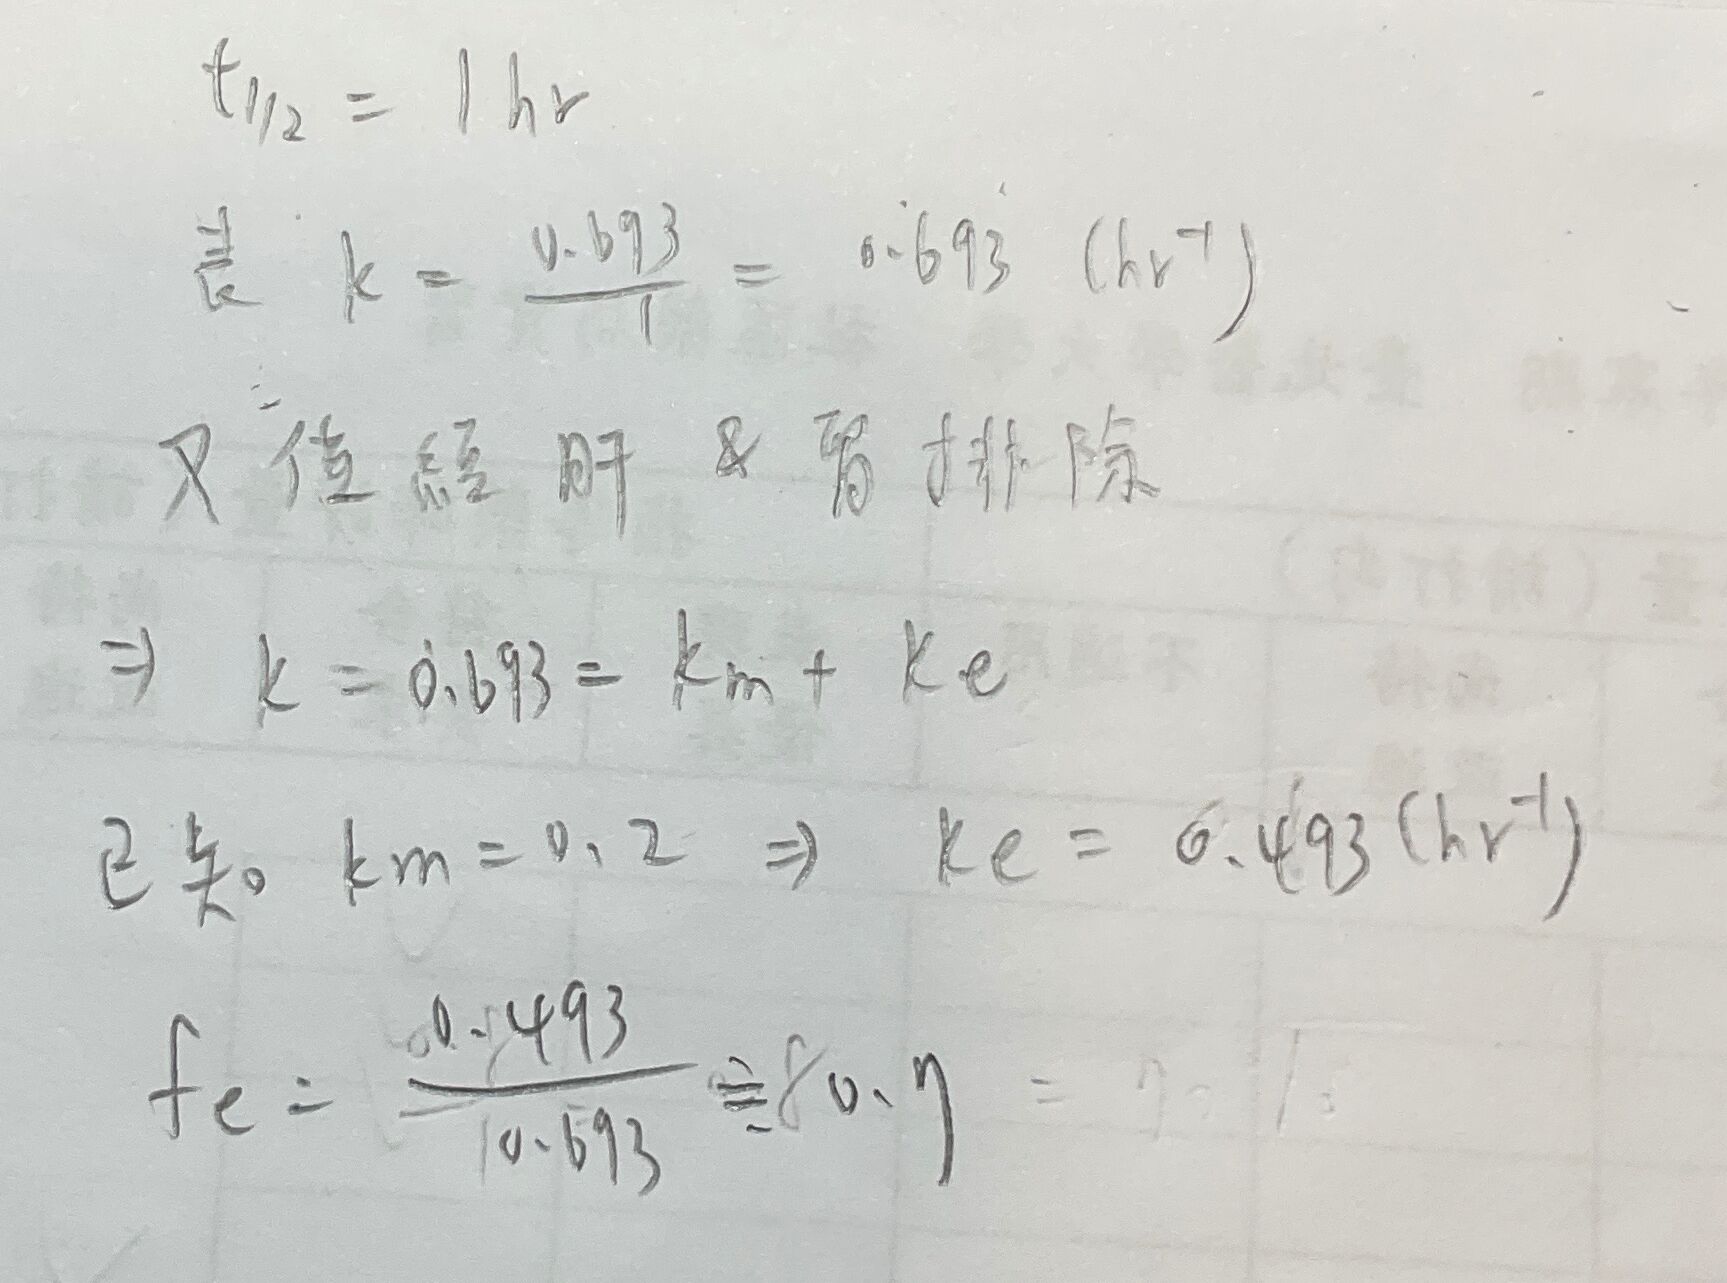 t1/2 = 1 hr
k = 0.693/1 = 0.693 (hr⁻¹)
又值經肝 & 腎排除
⇒ k = 0.693 = km + ke
已知 km = 0.2 ⇒ ke = 0.493 (hr⁻¹)
fe = 0.493/0.693 ≅ 0.7